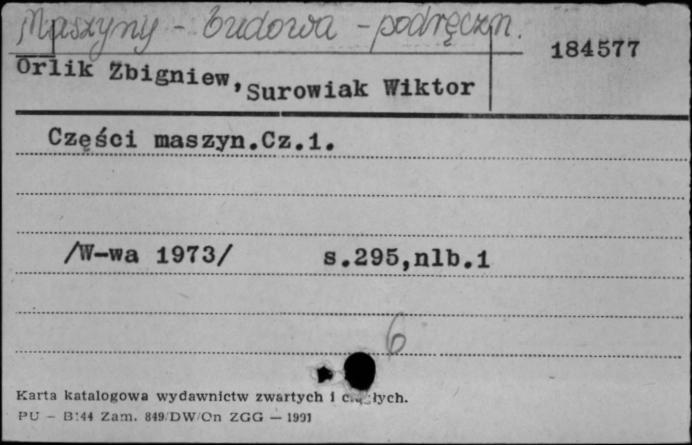 Maszyny - budowa - podręczn.
184577
Orlik Zbigniew, Surowiak Wiktor
Części maszyn.Cz.1.
/W-wa 1973/ s.295,nlb.1
6
Karta katalogowa wydawnictw zwartych i
PU - B144 Zam. 849/DW/On ZGG — 1991